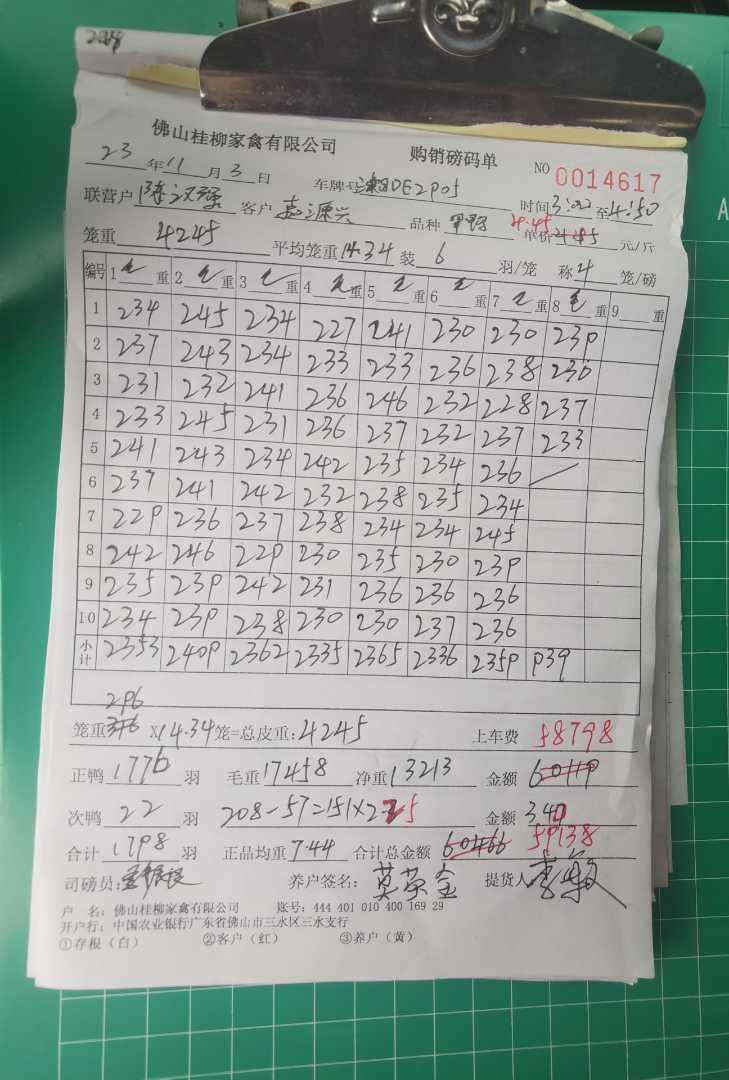 佛山桂柳家禽有限公司 购销磅码单 NO 0014617
23 年 11 月 3 日 车牌号 湘DE2P05 时间 3:00 至 4:50
联营户 陈汉强 客户 嘉源兴 品种 单价 4.45 元/斤
笼重 4245 平均笼重 14.34 装 6 羽/笼 称 4 笼/磅
编号 1 重 2 重 3 重 4 重 5 重 6 重 7 重 8 重 9 重
1 234 245 234 227 241 230 230 23P
2 237 243 234 233 233 236 238 230
3 231 232 241 236 246 232 228 237
4 233 245 231 236 237 232 237 233
5 241 243 234 242 235 234 236
6 237 241 242 232 238 235 234
7 22P 236 237 238 234 234 245
8 242 246 22P 230 235 230 23P
9 235 23P 242 231 236 236 236
10 234 23P 238 230 230 237 236
小计 2353 240P 2362 2335 2365 2336 235P P39
2P6
笼重 X14.34 笼=总皮重: 4245 上车费 58798
正鸭 1776 羽 毛重 17458 净重 13213 金额 6011P
次鸭 22 羽 208-57=151X2.25 金额 340
合计 1798 羽 正品均重 7.44 合计总金额 60466 59138
司磅员: 养户签名: 莫荣全 提货人
户 名: 佛山桂柳家禽有限公司 账号: 444 401 010 400 169 29
开户行: 中国农业银行广东省佛山市三水区三水支行
①存根(白) ②客户(红) ③养户(黄)